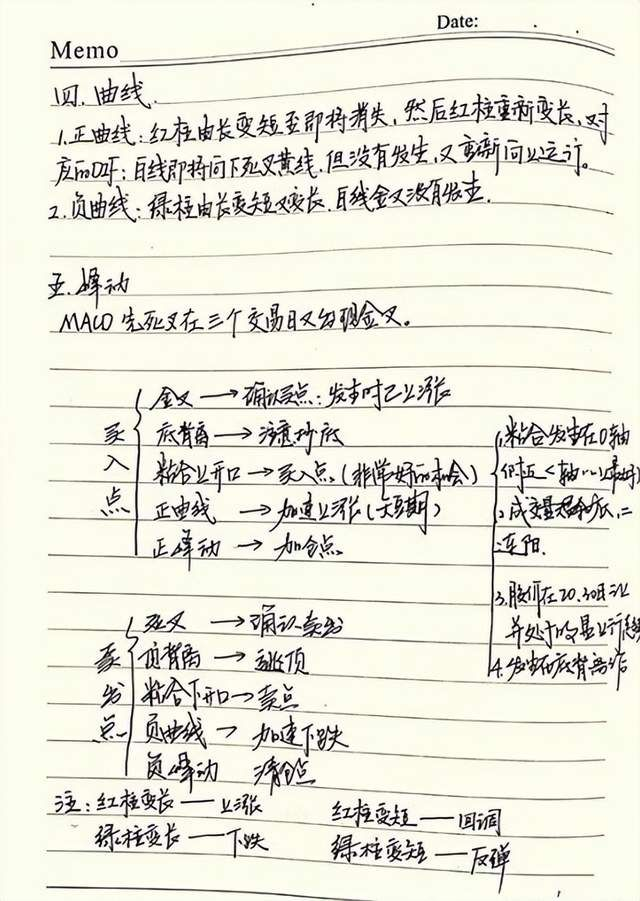 Date:
Memo
四. 曲线.
1.正曲线: 红柱由长变短至即将消失, 然后红柱重新变长, 对
应的DIF: 白线即将向下死叉黄线, 但没有发生, 又重新向上运行。
2. 负曲线: 绿柱由长变短又变长. 白线金叉没有发生.
五. 峰动
MACD 先死叉在三个交易日又出现金叉。
买入点
金叉 → 确认买点: 发生时已上涨
底背离 → 注意抄底
粘合上开口 → 买入点 (非常好的机会)
正曲线 → 加速上涨 (大豆期)
正峰动 → 加仓点.
1.粘合发生在0轴
附近 < 轴以上最好)
2.成交量 二
连阳.
3.股价在20.30日
并处于明显上行
4.发生在底背离后
卖出点
死叉 → 确认卖出
顶背离 → 逃顶
粘合下开口 → 卖点
负曲线 → 加速下跌
负峰动 清仓点
注: 红柱变长 — 上涨 红柱变短 — 回调
绿柱变长 — 下跌 绿柱变短 — 反弹